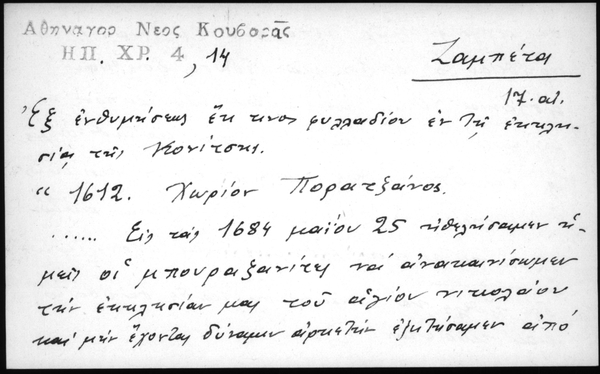 Αθηναγος Νεος Κουβαρᾶς
ΗΠ. ΧΡ. 4, 14
Ζαμπέτα
17. αἰ.
Ἐξ ἐνθυμήσεως ἔκ τινος φυλλαδίου ἐν τῇ ἐκκλη-
σίᾳ τῆς Κονίτσης.
" 1612. Χωρίον Πορατζάνος.
...... Εἰς τὰς 1684 μαΐου 25 ἠθελήσαμεν ἡ-
μεῖς οἱ μπουραζανίτες νά ἀνακαινίσωμεν
τὴν ἐκκλησίαν μας τοῦ ἁγίου νικολάου
καί μήν ἔχοντας δύναμιν ἀρκετήν ἐζητήσαμεν ἀπό